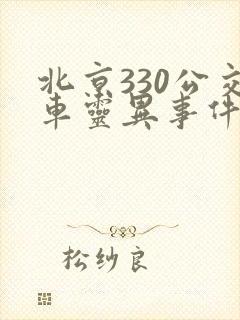 北京330公交
車靈異事件
松纱良